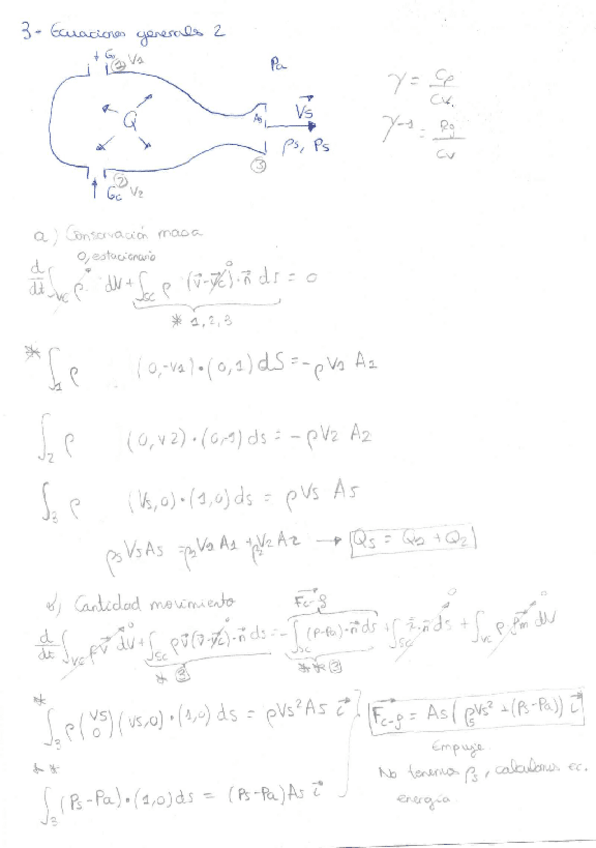 3- Ecuaciones generales 2
+ G ① V1
Pa
γ = Cp / Cv
Q
As
Vs
γ-1 = Rg / Cv
ρs, Ps
③
② V2
Gc
a) Conservación masa
0, estacionario
d/dt ∫VC ρ dV + ∫SC ρ (v-vc)·n ds = 0
* 1,2,3
* ∫1 ρ (0,-v1)·(0,1) dS = -ρ V1 A1
∫2 ρ (0,v2)·(0,-1) ds = -ρ V2 A2
∫3 ρ (Vs,0)·(1,0) ds = ρ Vs As
ρs Vs As = ρ1 V1 A1 + ρ2 V2 A2 → Qs = Q1 + Q2
b) Cantidad movimiento
Fc-f
d/dt ∫VC ρv dV + ∫SC ρv(v-vc)·n ds = -∫SC (P-Pa)·n ds + ∫SC τ·n ds + ∫VC ρ fm dV
* ③
** ③
*
∫3 ρ (Vs 0)(vs,0)·(1,0) ds = ρVs² As i
Fc-f = As (ρs Vs² + (Ps-Pa)) i
Empuje
**
No tenemos ρs, calculamos ec. energía.
∫3 (Ps-Pa)·(1,0) ds = (Ps-Pa) As i